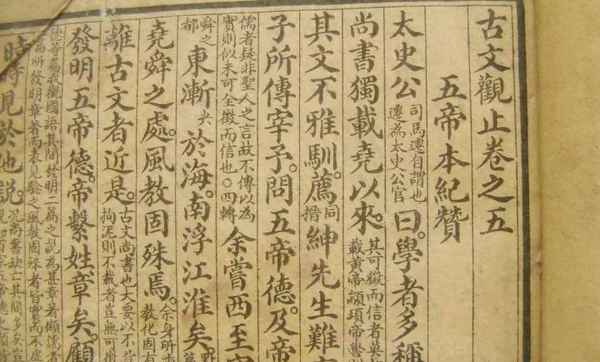 古文觀止卷之五
五帝本紀贊
太史公司馬遷自謂也遷為太史公官曰。學者多稱
尚書獨載堯以來。其可徵而信者莫載黃帝顓頊帝嚳
其文不雅馴。薦同搢紳先生難
子所傳宰予。問五帝德。及帝
儒者疑非聖人之言故不傳以為實則似未可全徵而信也○四轉余嘗西至空
舜之都東漸尖於海。南浮江淮矣。
堯舜之處。風教固殊焉。余身所教化固有
離古文者近是。古文尚書也大要以不背拘泥則不載者豈無可徵
發明五帝德。帝繫姓章矣。顧
時時見於他說。